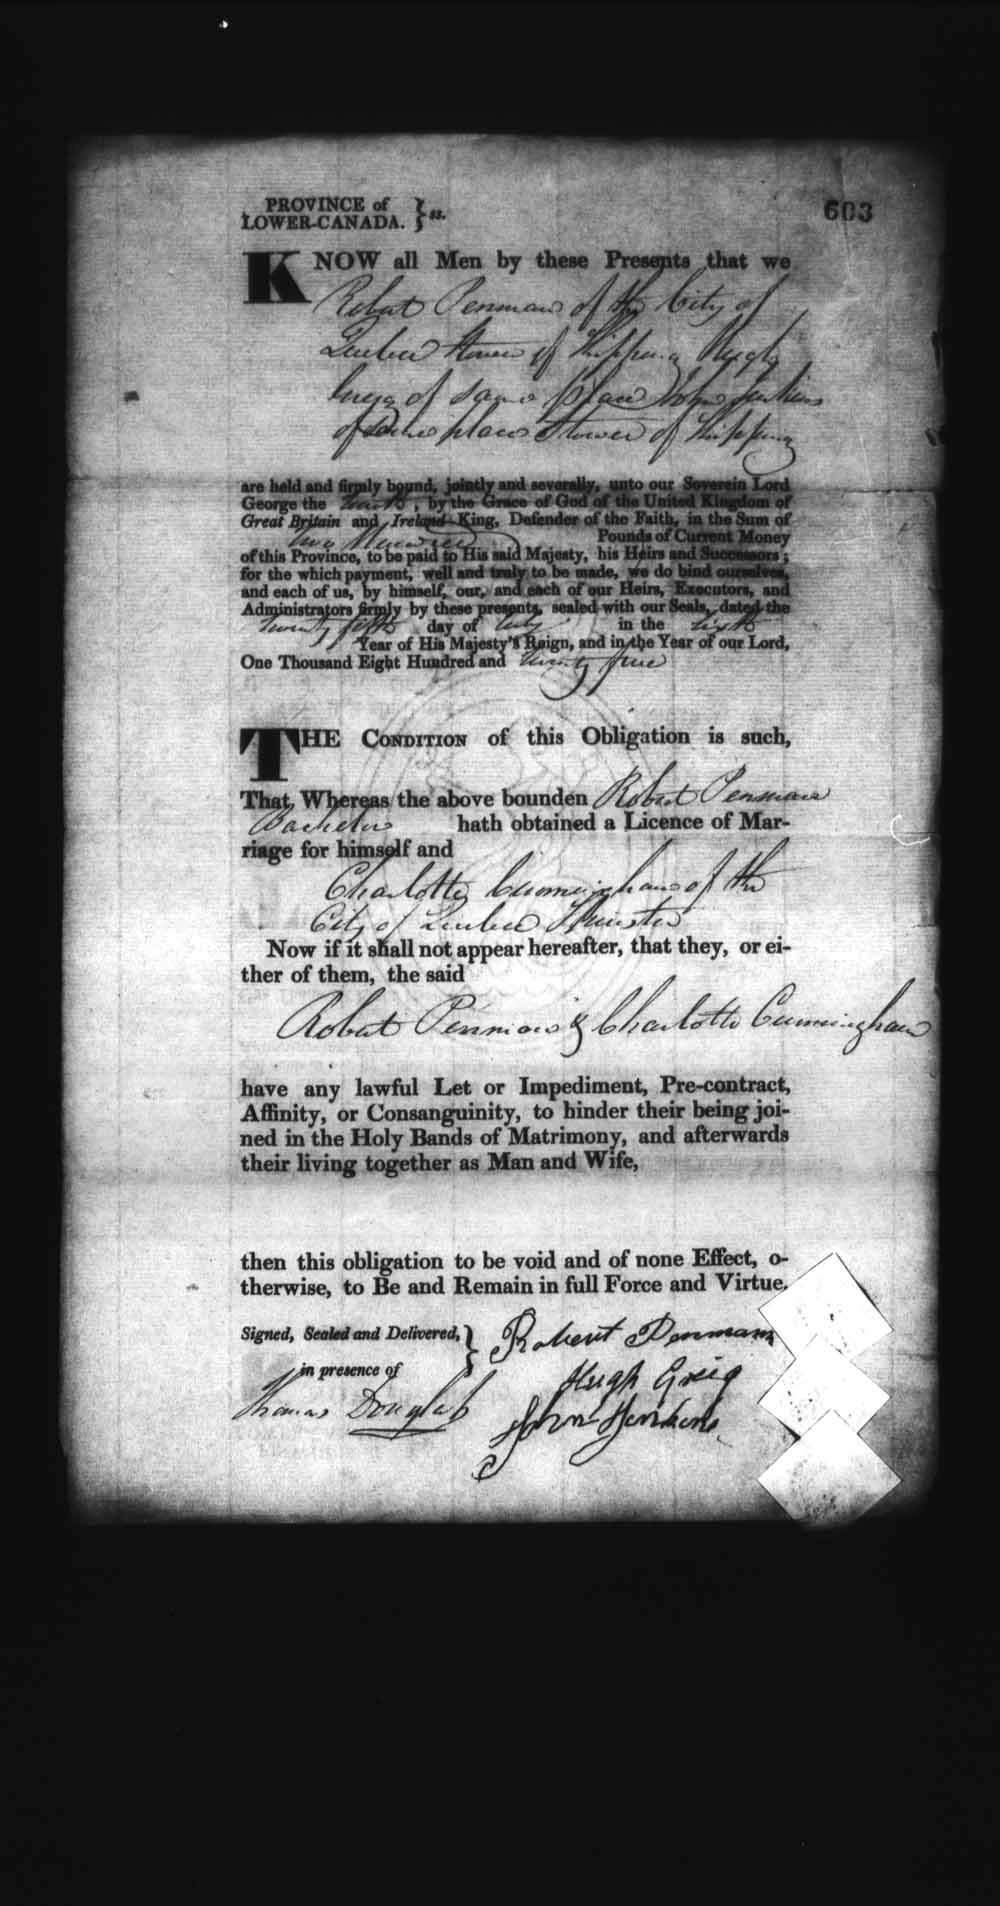 PROVINCE of
LOWER-CANADA. } ss.
603
KNOW all Men by these Presents that we
Robert Penman of the City of
Quebec Stower of Shipping Hugh
Greig of same place John Jenkins
of same place Stower of Shipping
are held and firmly bound, jointly and severally, unto our Soverein Lord
George the fourth, by the Grace of God of the United Kingdom of
Great Britain and Ireland King, Defender of the Faith, in the Sum of
two Hundred Pounds of Current Money
of this Province, to be paid to His said Majesty, his Heirs and Successors;
for the which payment, well and truly to be made, we do bind ourselves,
and each of us, by himself, our, and each of our Heirs, Executors, and
Administrators firmly by these presents, sealed with our Seals, dated the
twenty fifth day of July in the sixth
Year of His Majesty's Reign, and in the Year of our Lord,
One Thousand Eight Hundred and twenty five
THE CONDITION of this Obligation is such,
That, Whereas the above bounden Robert Penman
Bachelor hath obtained a Licence of Mar-
riage for himself and
Charlotte Cunningham of the
City of Quebec Spinster
Now if it shall not appear hereafter, that they, or ei-
ther of them, the said
Robert Penman & Charlotte Cunningham
have any lawful Let or Impediment, Pre-contract,
Affinity, or Consanguinity, to hinder their being joi-
ned in the Holy Bands of Matrimony, and afterwards
their living together as Man and Wife,
then this obligation to be void and of none Effect, o-
therwise, to Be and Remain in full Force and Virtue.
Signed, Sealed and Delivered, }
in presence of
Robert Penman
Hugh Greig
Thomas Douglas
John Jenkins